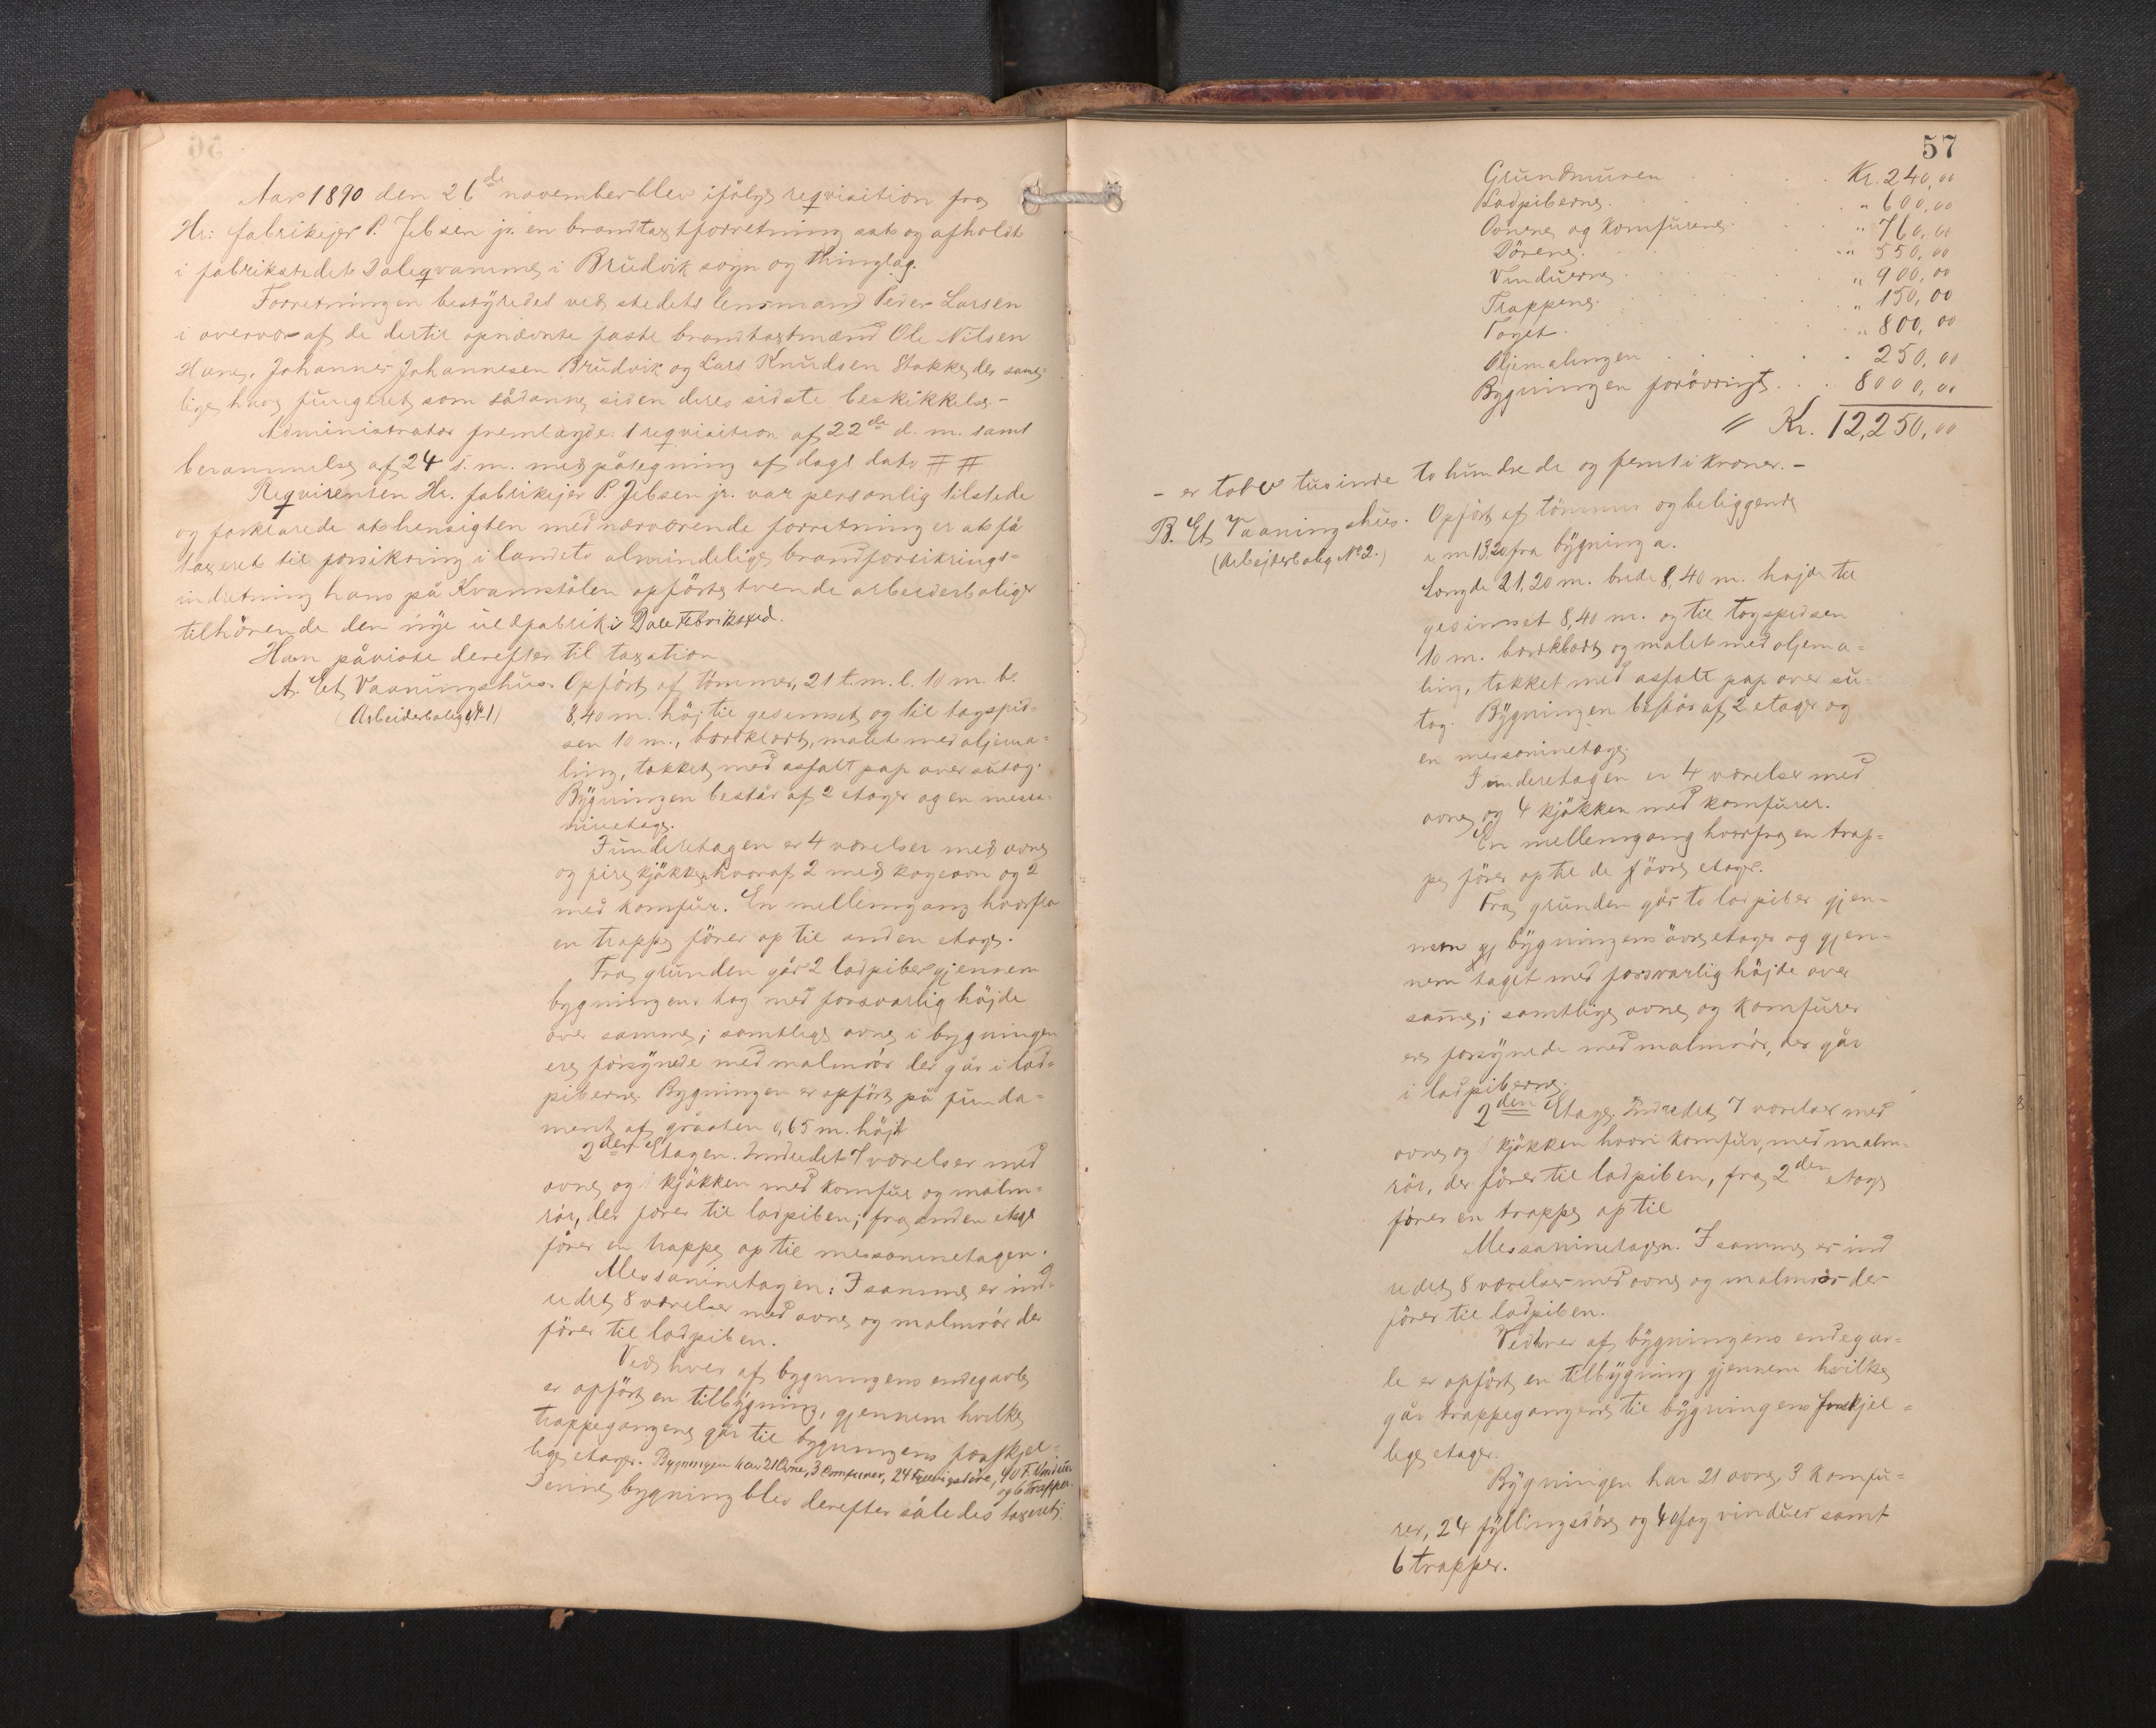 Aar 1890 den 26de november blev ifölge reqvisition fra
Hr: fabrikejer P. Jebsen jr. en brandtaxtforretning sat og afholdt
i fabrikstedet Daleqvamme i Brudvik sogn og thinglag.
Forretningen bestyredes ved stedets lensmand Peder Larsen
i overvær af de dertil opnævnte faste brandtaxtmænd Ole Nilsen
Hane, Johannes Johannesen Brudvik og Lars Knudsen Stokke, der sam-
lige have fungeret som sådanne siden deres sidste beskikkelse. -
Administrator fremlagde: 1 reqvisition af 22de d. m. samt
berammelse af 24 s. m. med påtegning af dags dato # #
Reqvirenten Hr. fabrikejer P. Jebsen jr. var personlig tilstede
og forklarede at hensigten med nærværende forretning er at få
taxeret til forsikring i landets almindelige brandforsikrings-
indretning hans på Kvamstölen opförte tvende arbeiderboliger
tilhörende den nye uldfabrik i Dale Fabriksted.
Han påviste derefter til taxation
A. Et Vaaningshus. Opfört af tömmer, 21 t. m. l. 10 m. b.
(Arbeiderbolig No 1) 8,40 m. höj til gesimset og til tagspid-
sen 10 m., bordklædt, malet med oljema-
ling, takket med asfalt pap over sutag.
Bygningen består af 2 etager og en messa-
ninetage.
I underetagen er 4 værelser med ovne
og fire kjökken hvoraf 2 med kogeovn og 2
med komfur. En mellemgang hvorfra
en trappe förer op til anden etage.
Fra grunden går 2 ladpiber gjennem
bygningens tag med forsvarlig höjde
over samme; samtlige ovne i bygningen
ere forsynede med malmrör der går i lad-
piberne. Bygningen er opfört på funda-
ment af gråsten 0,65 m. höjt
2den Etagen. Indredet 7 værelser med
ovne og 1 kjökken med komfur og malm-
rör, der förer til ladpiben; fra anden etage
förer en trappe op til messaninetagen.
Messaninetagen: I samme er ind-
redet 8 værelser med ovne og malmrör der
förer til ladpiben.
Ved hver af bygningens endegavle
er opfört en tilbygning, gjennem hvilke
trappegangene går til bygningens forskjel-
lige etager. Bygningen har 21 Ovne, 3 Comfurer, 24 Fyllingsdöre, 40 F. Vinduer
og 6 Trapper.
Denne bygning blev derefter således taxeret:
57
Grundmuren . . . Kr. 240,00
Ladpiberne . . . " 600,00
Ovnene og Komfurene . . . " 760,00
Dörene . . . " 550,00
Vinduerne . . . " 900,00
Trappene . . . " 150,00
Taget . . . " 800,00
Oljemalingen . . . 250,00
Bygningen forövrigt . . . 8000,00
// Kr. 12,250,00
- er tolv tusinde tohundrede og femti kroner. -
B. Et Vaaningshus. Opfört af tömmer og beliggende
(Arbejderbolig No 2.) i m 13,20 fra bygning a.
Længde 21,20 m. brede 8,40 m. højde til
gesimset 8,40 m. og til tagspidsen
10 m. bordklædt og malet med oljema-
ling, takket med asfalt pap over su-
tag. Bygningen består af 2 etager og
en messaninetage.
I underetagen er 4 værelser med
ovne og 4 kjökken med komfurer.
En mellemgang hvorfra en trap-
pe förer op til de övre etager.
Fra grunden går to ladpiber gjen-
nem gj bygningens övre etager og gjen-
nem taget med forsvarlig höjde over
samme; samtlige ovne og komfurer
ere forsynede med malmrör, der går
i ladpiberne.
2den Etage. Indredet 7 værelser med
ovne og 1 kjökken hvori komfur, med malm-
rör, der förer til ladpiben, fra 2den etage
förer en trappe op til
Messaninetagen. I samme er ind
redet 8 værelser med ovne og malmrör der
förer til ladpiben.
Ved hver af bygningens endegav-
le er opfört en tilbygning gjennem hvilke
går trappegangene til bygningens forskjel-
lige etager.
Bygningen har 21 ovne, 3 komfu-
rer, 24 fyllingsdöre og 40 fag vinduer samt
6 trapper.